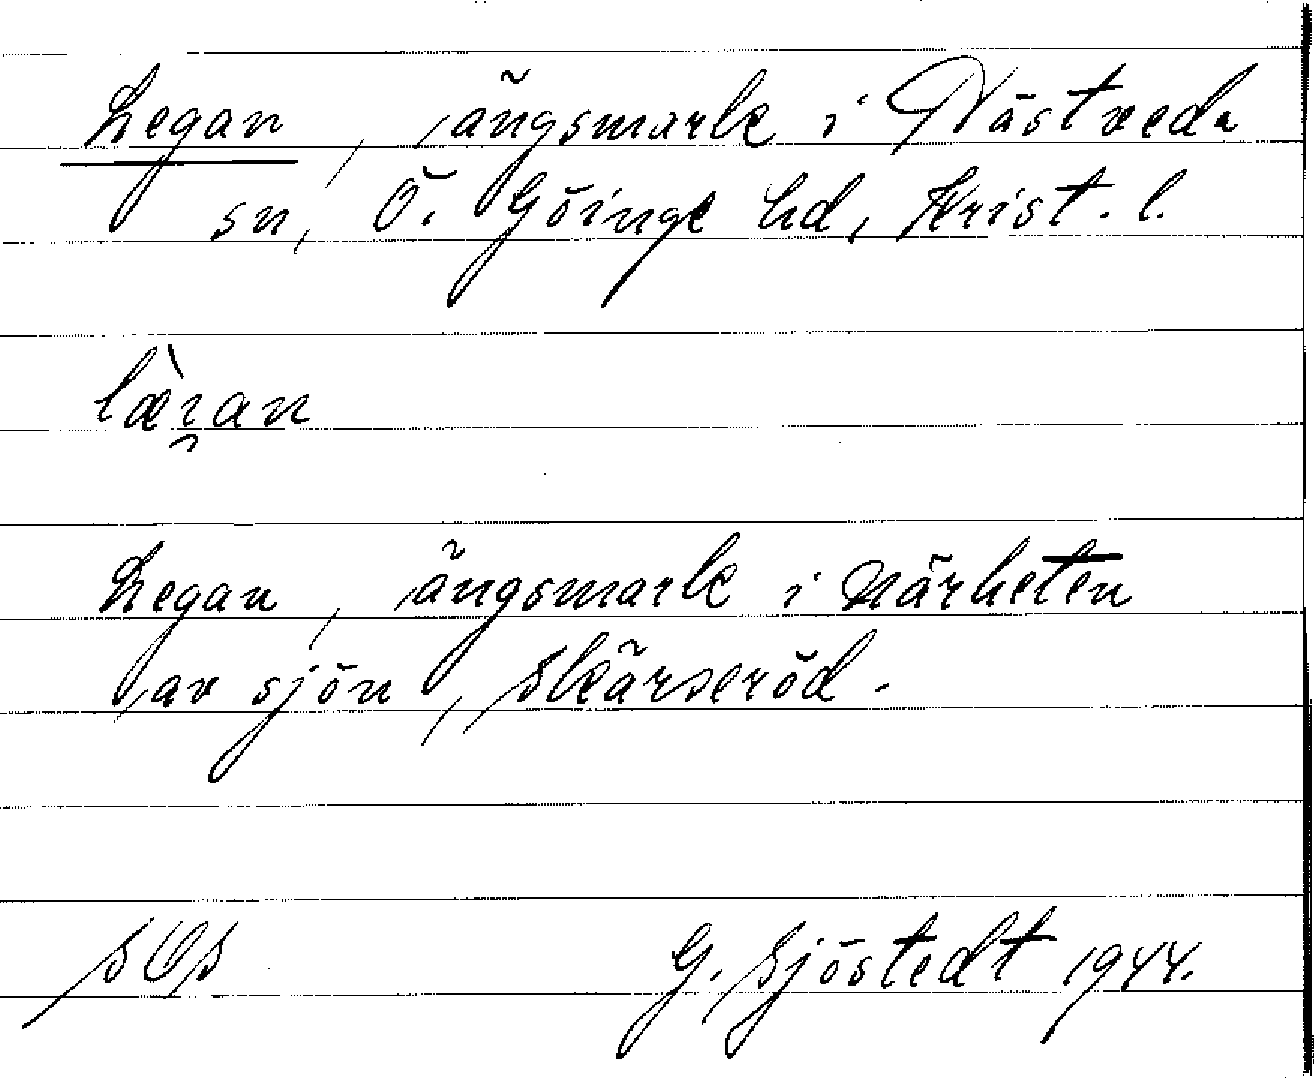 Legan, ängsmark i Nästveda
sn, Ö. Göinge hd, Krist. l.
Legan, ängsmark i närheten
av sjön, Skärseröd.
G. Sjöstedt 1944.